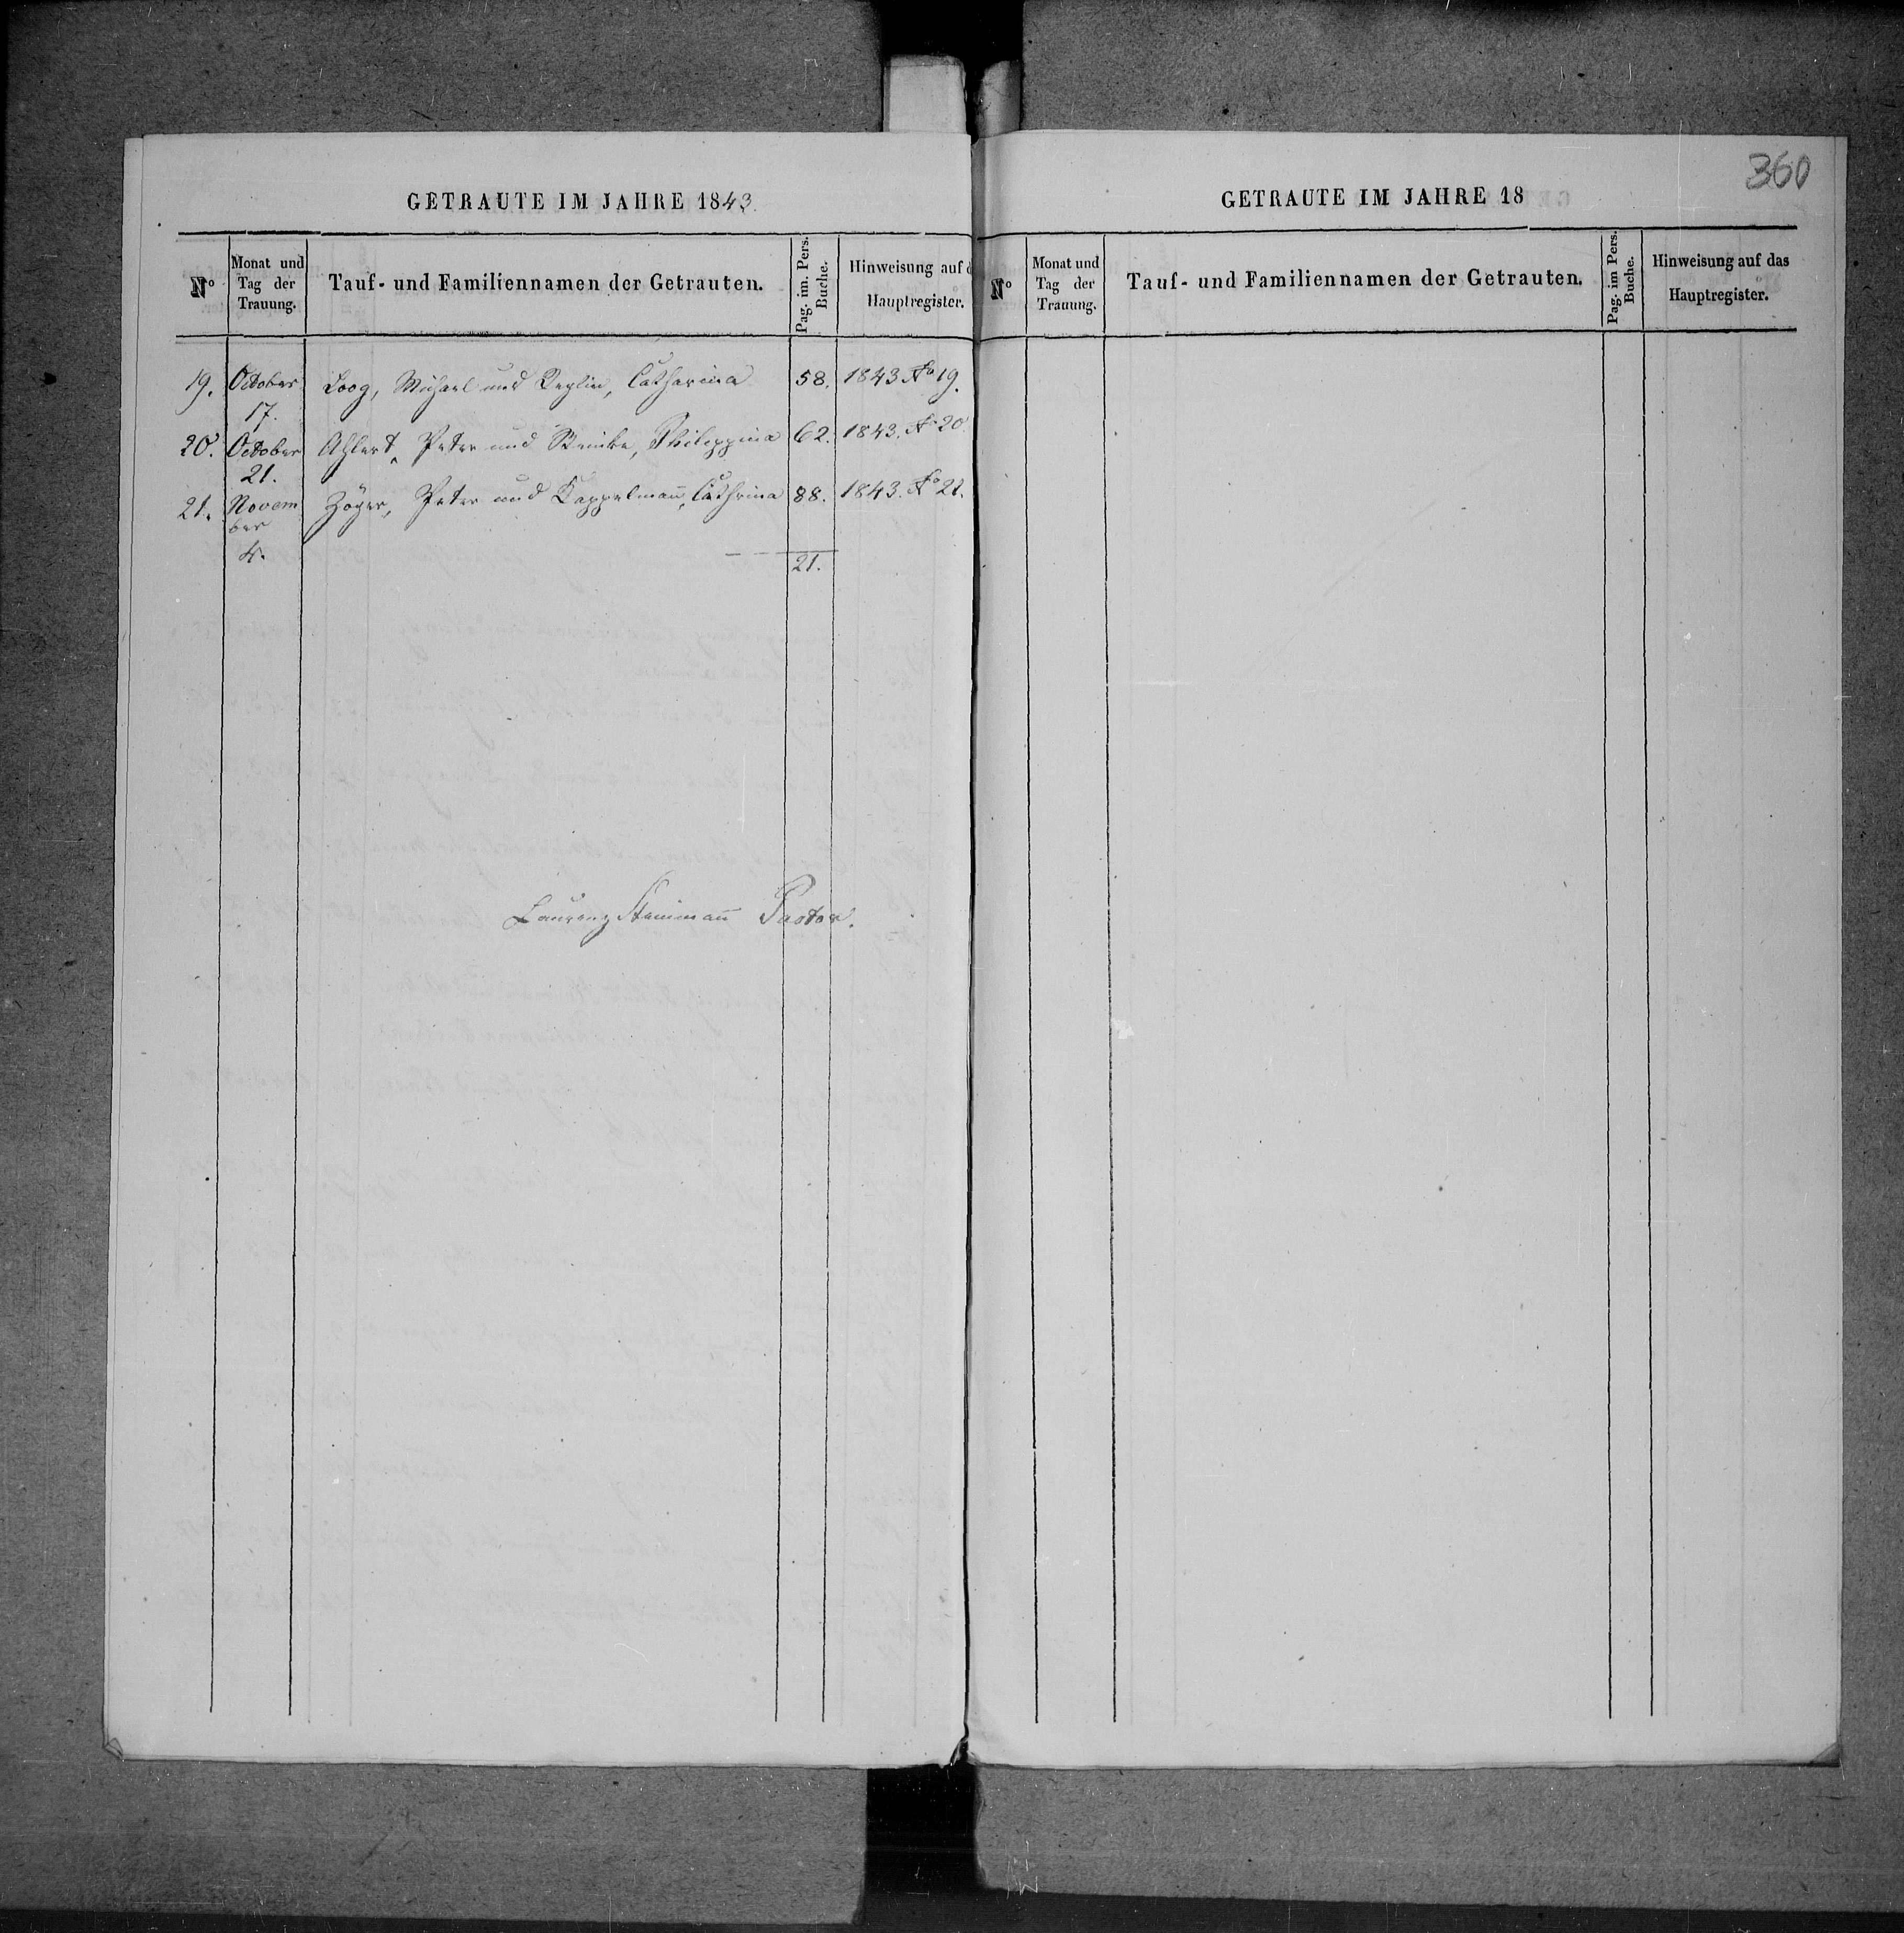 360
GETRAUTE IM JAHRE 1843.
No
Monat und
Tag der
Trauung.
Tauf- und Familiennamen der Getrauten.
Pag. im. Pers.
Buche.
Hinweisung auf d
Hauptregister.
19. October Loog, Michael und Replin, Catharina 58. 1843 No 19.
17.
20. October Ahlert, Peter und Reinke, Philippina 62. 1843. No 20.
21.
21. Novem Zöger, Peter und Kappelmañ, Cathrina 88. 1843. No 21.
ber
4.
21.
Laurenz Steinmañ Pastor.
GETRAUTE IM JAHRE 18
No
Monat und
Tag der
Trauung.
Tauf- und Familiennamen der Getrauten.
Pag. im Pers.
Buche.
Hinweisung auf das
Hauptregister.